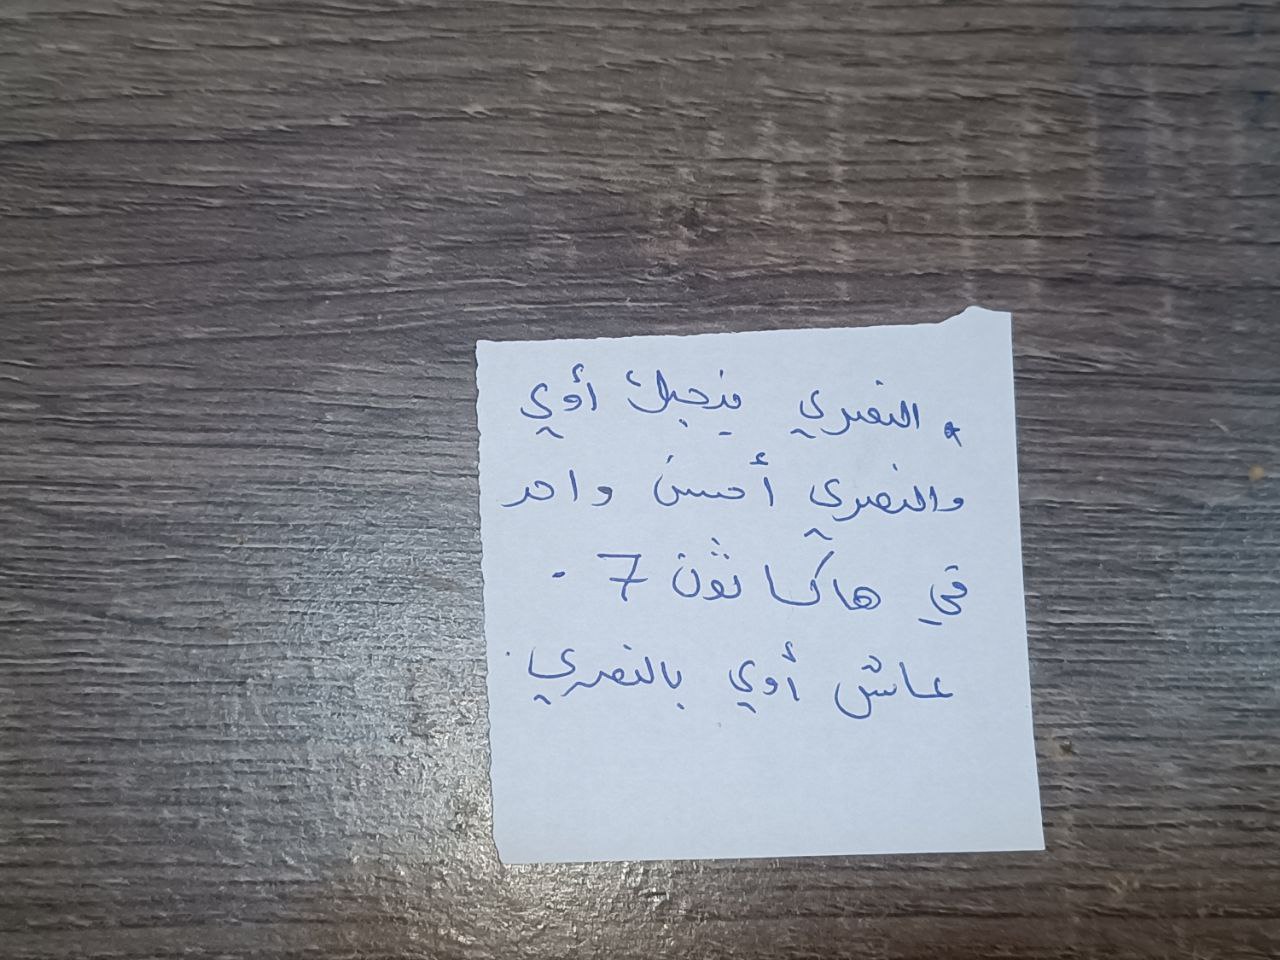 * النصري فزجبل أوي
والنصري أحسن واحد
في هاكاثون 7 .
عاش أوي يالنصري .